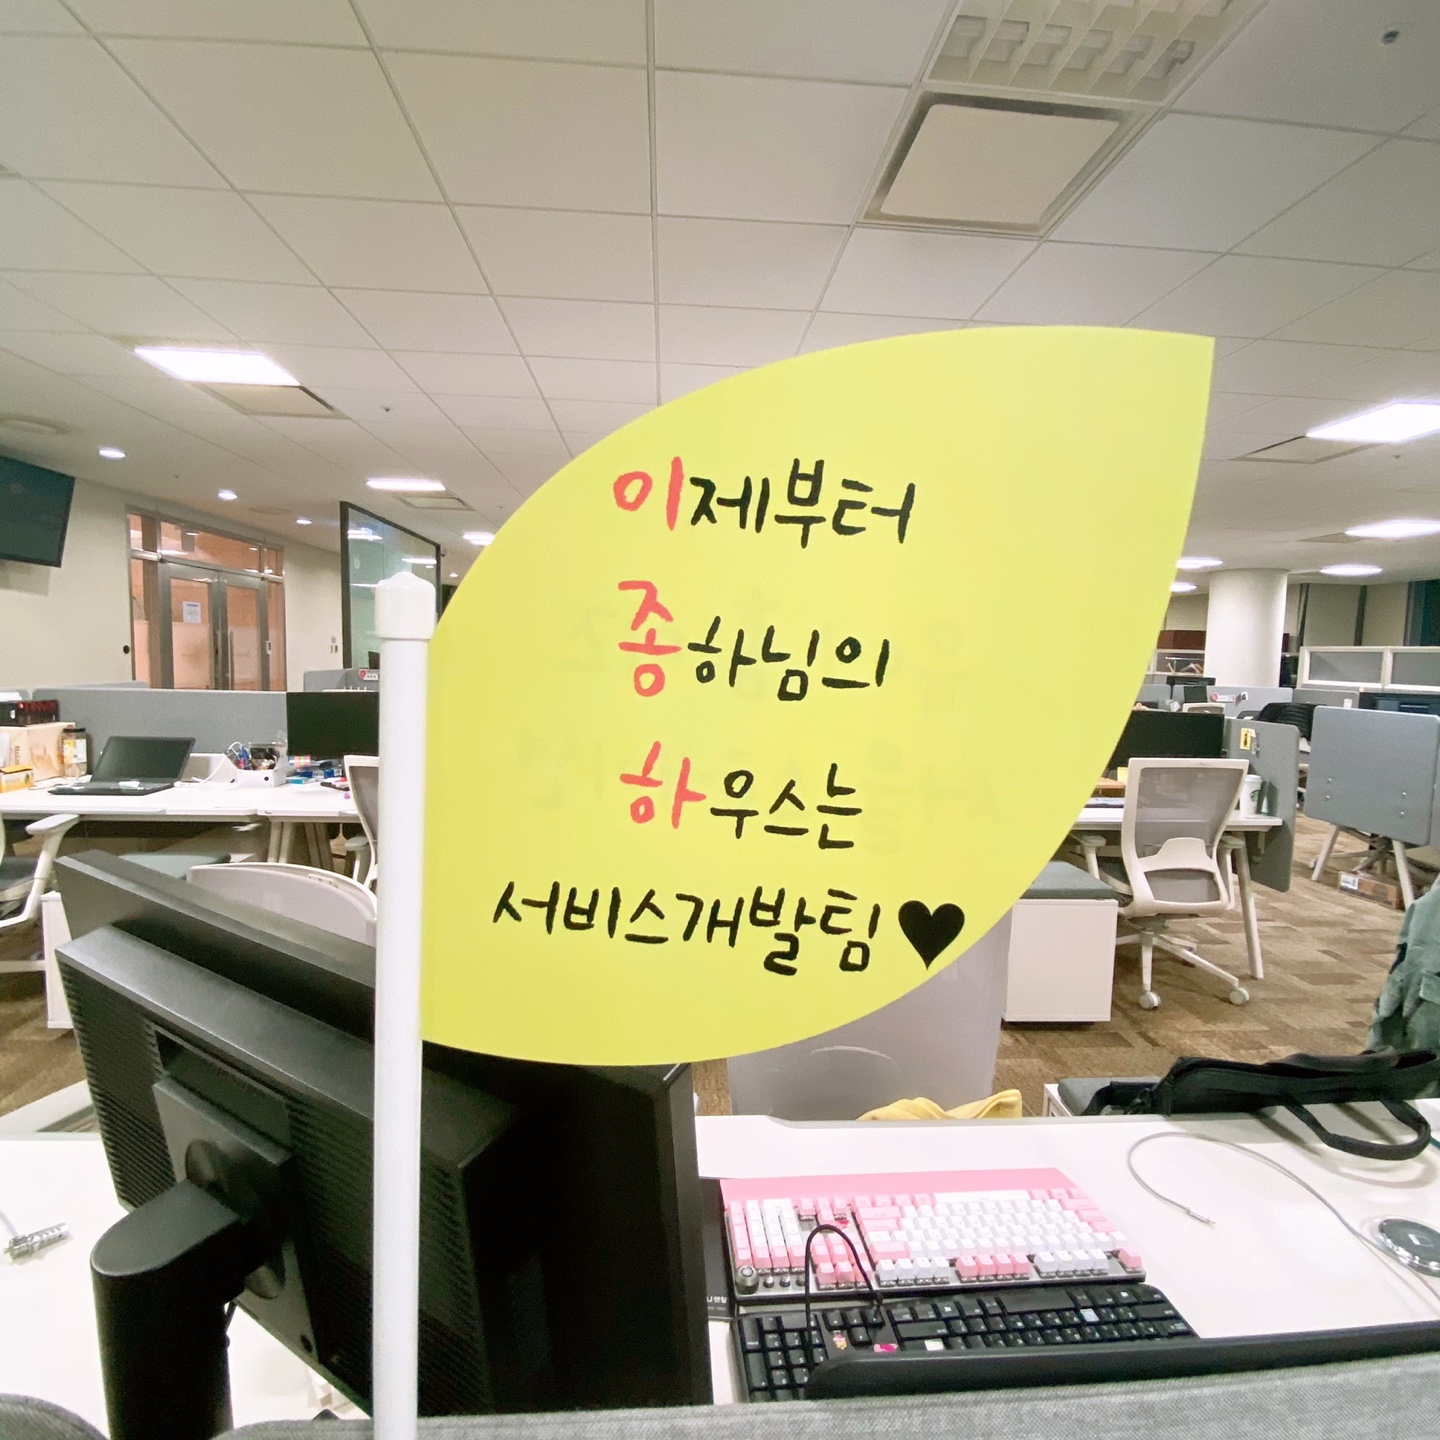 이제부터
종하님의
하우스는
서비스개발팀♥